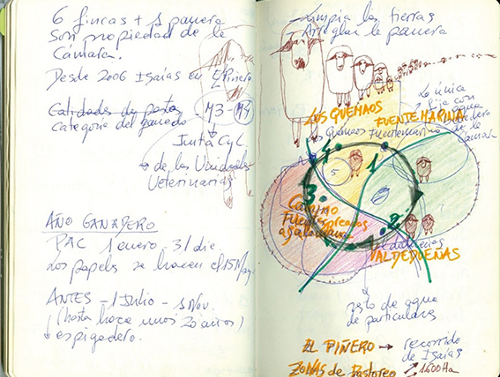 6 fincas + 1 panera
Son propiedad de la
Cámara.
Desde 2006 Isaías en El Piñero
Calidades de pasto M3 - M4
categoría del ganado
Junta CyL
de las Unidades
Veterinarias
AÑO GANADERO
PAC 1 enero - 31 dic
Los papeles se hacen el 15 Mayo
ANTES - 1 Julio - 1 Nov.
(hasta hace unos 20 años)
espigadero.
Limpia las tierras
Arreglar la panera
LOS QUEMAOS
FUENTEMARINA
Los Quemaos Fuentemarina
La única
fija con
agua
dentro
de la
1
2
3
4
5
CAMINO
VALDEDUEÑAS
resto de agua
de particulares
EL PIÑERO → recorrido
de Isaías
ZONAS de Pastoreo 1600 Ha